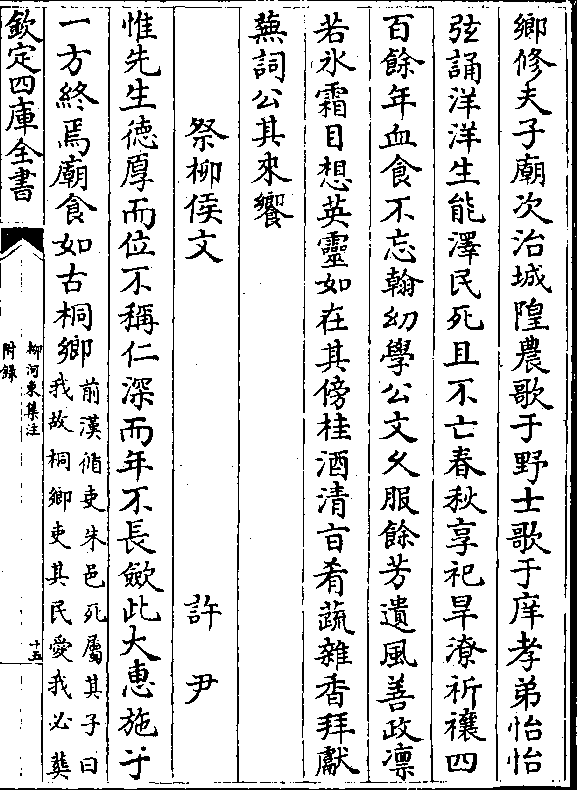 鄉修夫子廟次治城隍農歌于野士歌于庠孝弟怡怡
弦誦洋洋生能澤民死且不亡春秋享祀旱潦祈禳四
百餘年血食不忘翰幼學公文久服餘芳遺風善政凛
若氷霜目想英靈如在其傍桂酒清旨肴蔬雜香拜獻
蕪詞公其來饗
祭柳侯文 許尹
惟先生德厚而位不稱仁深而年不長斂此大惠施于
一方終焉廟食如古桐鄉
前漢循吏朱邑死屬其子曰
我故桐鄉吏其民愛我必葬
欽定四庫全書
柳河東集注
附錄
十五